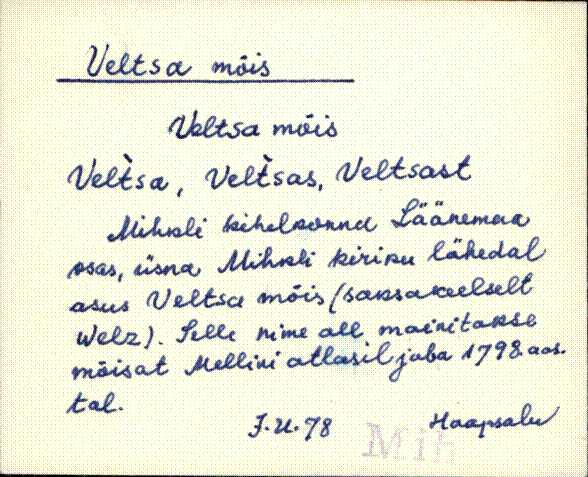 Veltsa mõis
Veltsa mõis
Vel̀tsa, Vel̀tsas, Veltsast
Mihkli kihelkonna Läänemaa
osas, üsna Mihkli kiriku lähedal
asus Veltsa mõis (saksakeelselt
Welz). Selle nime all mainitakse
mõisat Mellini atlasil juba 1798. aas.
tal.
J.U.78 Haapsalu
Mih